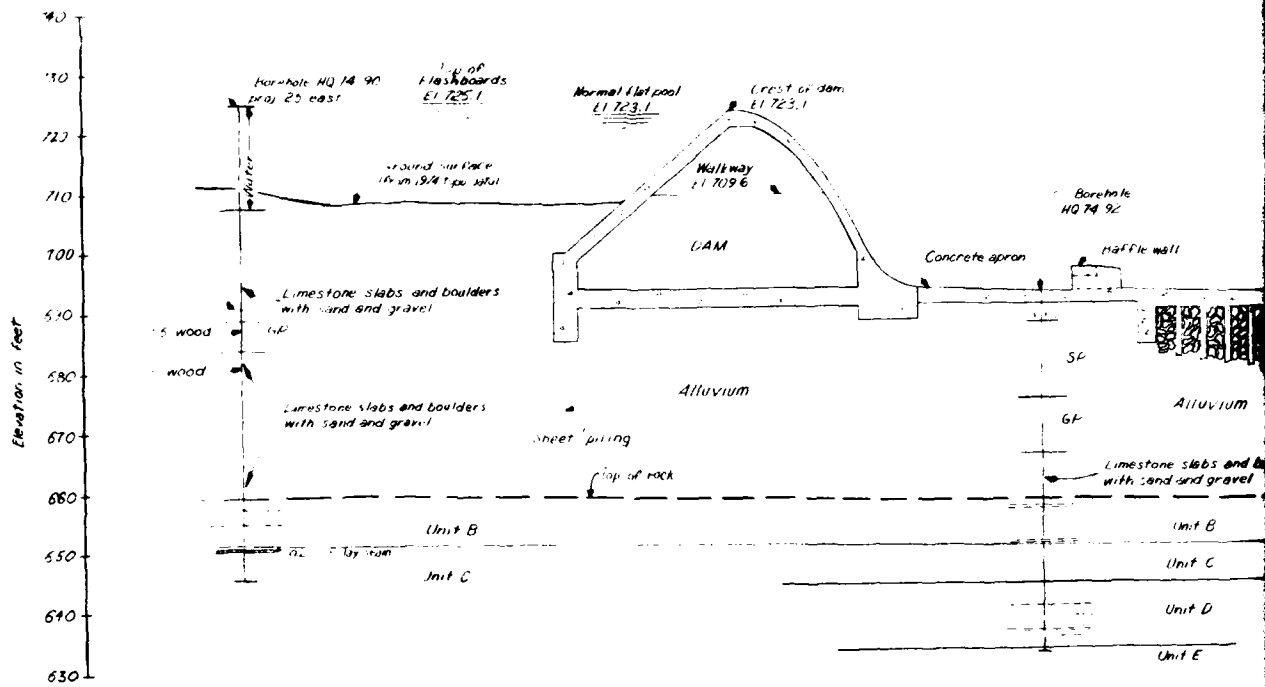 740
730
720
710
700
690
680
670
660
650
640
630
Elevation in feet
Borehole HQ 74 90
proj 25 east
Top of
Flashboards
El 725.1
Normal flat pool
El 723.1
Crest of dam
El 723.1
Water
Ground surface
Walkway
El 709.6
Borehole
HQ 74 92
DAM
Concrete apron
Baffle wall
Limestone slabs and boulders
with sand and gravel
wood
GP
wood
Limestone slabs and boulders
with sand and gravel
Alluvium
Sheet piling
SP
GP
Alluvium
Limestone slabs and
with sand and gravel
Top of rock
Unit B
Unit B
seam
Unit C
Unit C
Unit D
Unit E